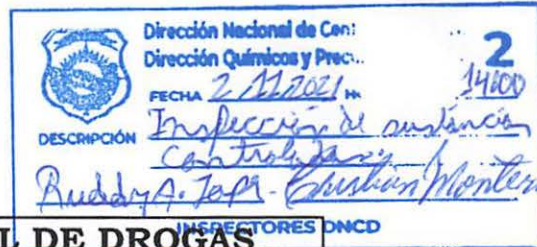 Dirección Nacional de Con
Dirección Químicos y Prec
2
FECHA 2/11/2021 H
DESCRIPCIÓN Inspección de sustancias
Controladas
Ruddy A. - Christian Montero
INSPECTORES DNCD
L DE DROGAS